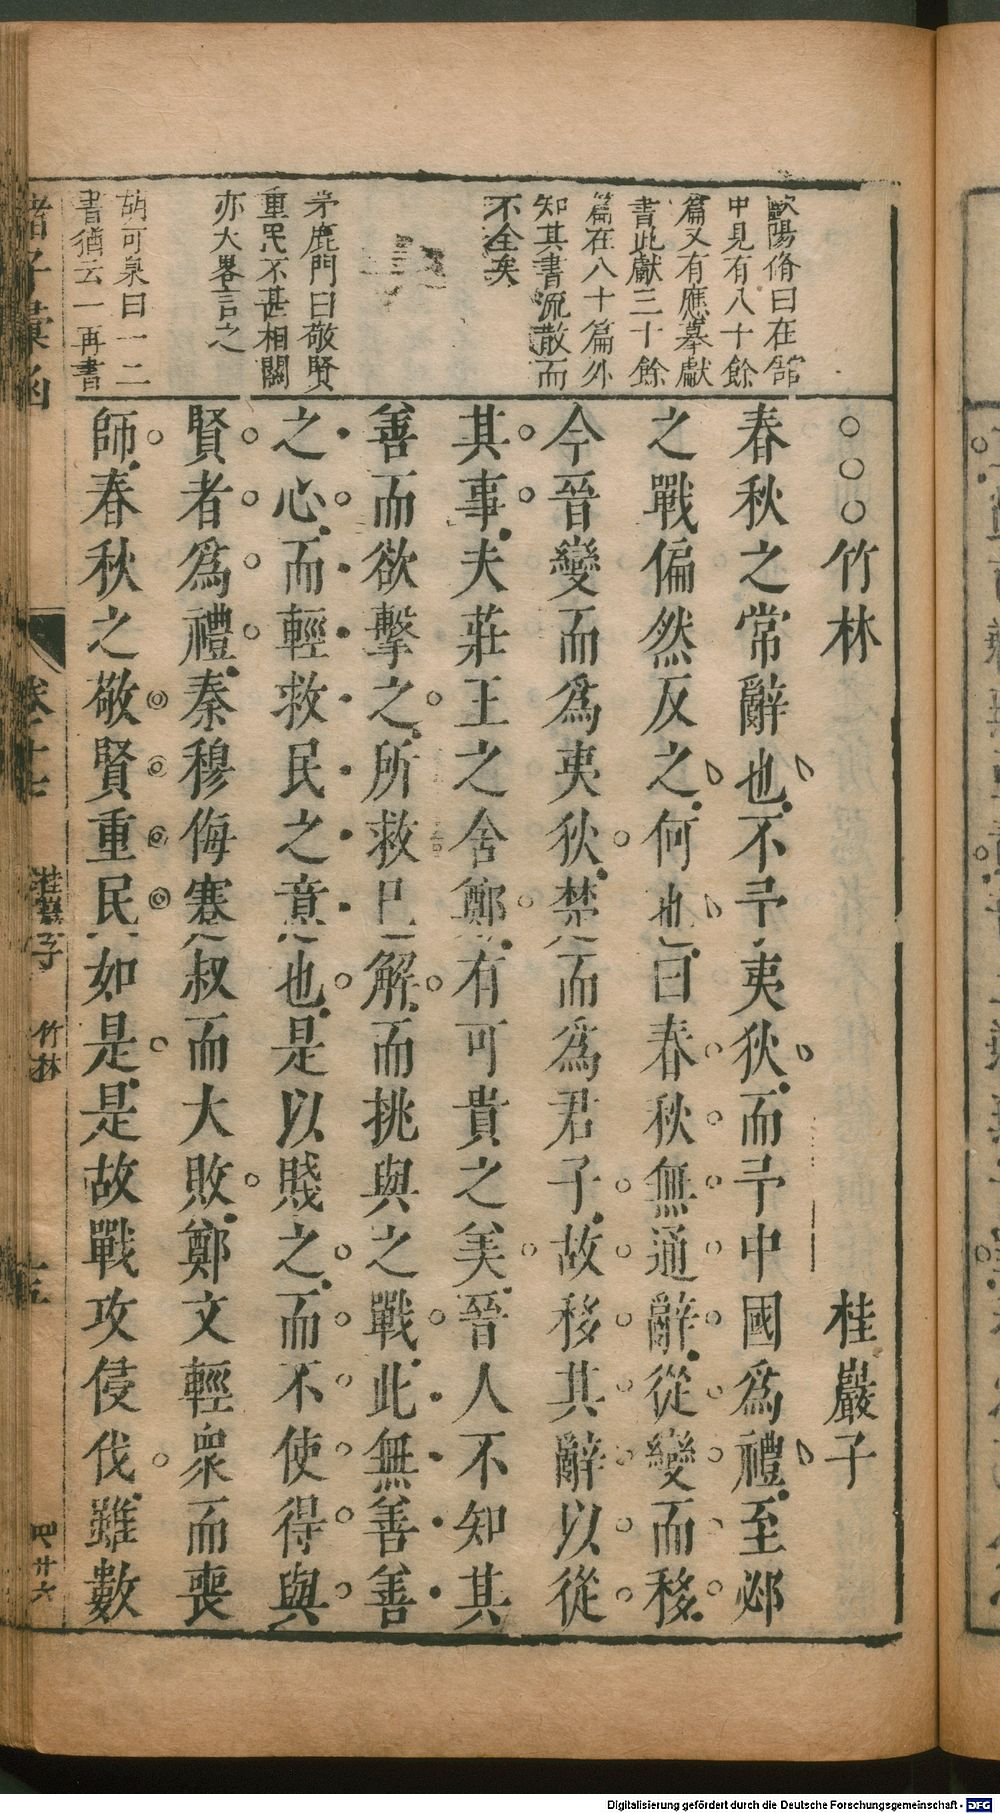 歐陽脩曰在舘
中見有八十餘
篇又有應募獻
書此獻三十餘
篇在八十篇外
知其書流散而
不全矣
茅鹿門曰敬賢
重民不甚相關
亦大畧言之
胡可泉曰一二
書猶云一再書
○○○竹林 桂巖子
春秋之常辭也不予夷狄而予中國爲禮至邲
之戰偏然反之何也曰春秋無通辭從變而移
今晉變而爲夷狄楚而爲君子故移其辭以從
其事夫莊王之舍鄭有可貴之美晉人不知其
善而欲擊之所救已解而挑與之戰此無善善
之心而輕救民之意也是以賤之而不使得與
賢者爲禮秦穆侮蹇叔而大敗鄭文輕衆而喪
師春秋之敬賢重民如是是故戰攻侵伐雖數
諸子彙函 卷十七 桂巖子 竹林 十五 四廿六
Digitalisierung gefördert durch die Deutsche Forschungsgemeinschaft - DFG